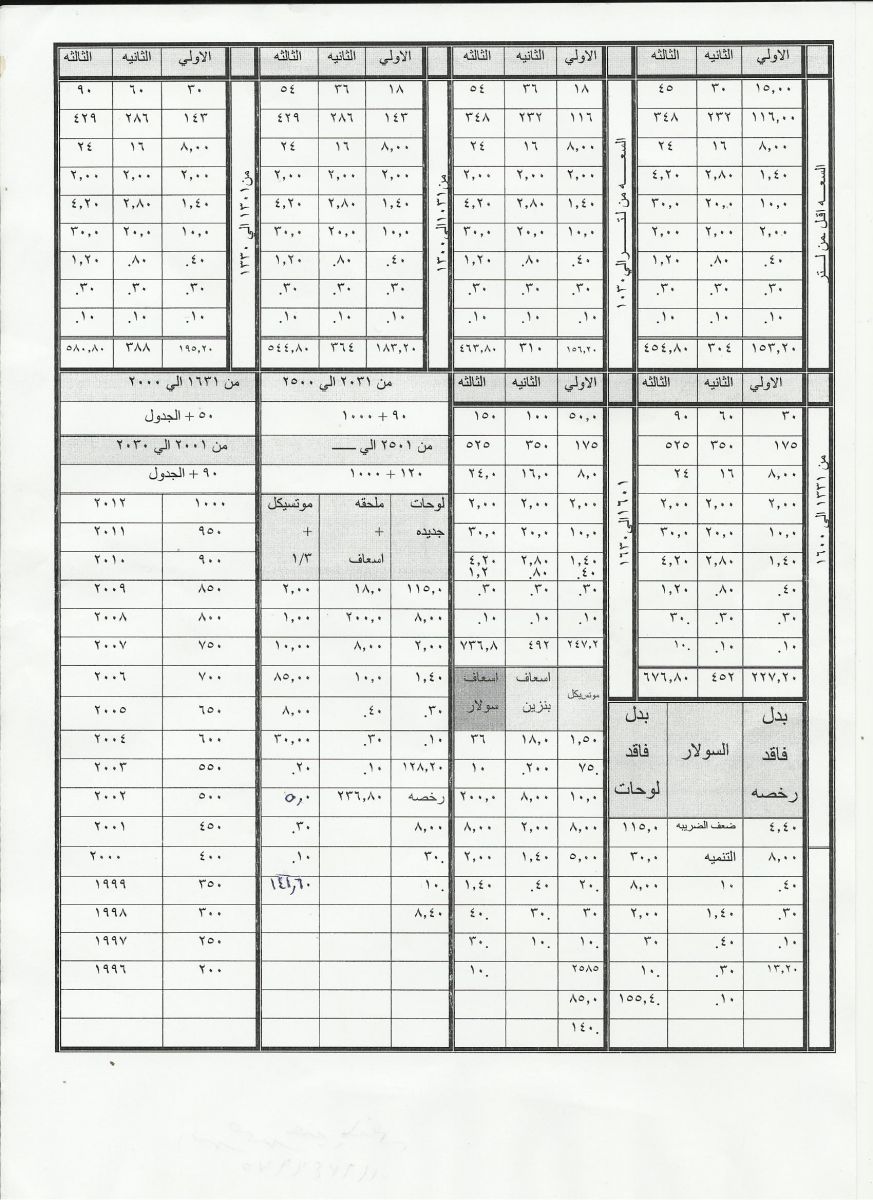 الاولي الثانيه الثالثه الاولي الثانيه الثالثه الاولي الثانيه الثالثه الاولي الثانيه الثالثه
السعــه اقل .من لتر
١٥,٠٠ ٣٠ ٤٥
١١٦,٠٠ ٢٣٢ ٣٤٨
٨,٠٠ ١٦ ٢٤
١,٤٠ ٢,٨٠ ٤,٢٠
١٠,٠ ٢٠,٠ ٣٠,٠
٢,٠٠ ٢,٠٠ ٢,٠٠
.٤٠ .٨٠ ١,٢٠
.٣٠ .٣٠ .٣٠
.١٠ .١٠ .١٠
١٥٣,٢٠ ٣٠٤ ٤٥٤,٨٠
السعــه من لتــرالي ١٠٣٠
١٨ ٣٦ ٥٤
١١٦ ٢٣٢ ٣٤٨
٨,٠٠ ١٦ ٢٤
٢,٠٠ ٢,٠٠ ٢,٠٠
١,٤٠ ٢,٨٠ ٤,٢٠
١٠,٠ ٢٠,٠ ٣٠,٠
.٤٠ .٨٠ ١,٢٠
.٣٠ .٣٠ .٣٠
.١٠ .١٠ .١٠
١٥٦,٢٠ ٣١٠ ٤٦٣,٨٠
من ١٠٣١الي ١٣٠٠
١٨ ٣٦ ٥٤
١٤٣ ٢٨٦ ٤٢٩
٨,٠٠ ١٦ ٢٤
٢,٠٠ ٢,٠٠ ٢,٠٠
١,٤٠ ٢,٨٠ ٤,٢٠
١٠,٠ ٢٠,٠ ٣٠,٠
.٤٠ .٨٠ ١,٢٠
.٣٠ .٣٠ .٣٠
.١٠ .١٠ .١٠
١٨٣,٢٠ ٣٦٤ ٥٤٤,٨٠
من ١٣٠١ الي ١٣٣٠
٣٠ ٦٠ ٩٠
١٤٣ ٢٨٦ ٤٢٩
٨,٠٠ ١٦ ٢٤
٢,٠٠ ٢,٠٠ ٢,٠٠
١,٤٠ ٢,٨٠ ٤,٢٠
١٠,٠ ٢٠,٠ ٣٠,٠
.٤٠ .٨٠ ١,٢٠
.٣٠ .٣٠ .٣٠
.١٠ .١٠ .١٠
١٩٥,٢٠ ٣٨٨ ٥٨٠,٨٠
الاولي الثانيه الثالثه
من ١٣٣١ الي ١٦٠٠
٣٠ ٦٠ ٩٠
١٧٥ ٣٥٠ ٥٢٥
٨,٠٠ ١٦ ٢٤
٢,٠٠ ٢,٠٠ ٢,٠٠
١٠,٠ ٢٠,٠ ٣٠,٠
١,٤٠ ٢,٨٠ ٤,٢٠
.٤٠ .٨٠ ١,٢٠
.٣٠ .٣٠ ٣٠.
.١٠ .١٠ ١٠.
٢٢٧,٢٠ ٤٥٢ ٦٧٦,٨٠
الاولي الثانيه الثالثه
١٦٠١الي ١٦٣٠
٥٠,٠ ١٠٠ ١٥٠
١٧٥ ٣٥٠ ٥٢٥
٨,٠ ١٦,٠ ٢٤,٠
٢,٠٠ ٢,٠٠ ٢,٠٠
١٠,٠ ٢٠,٠ ٣٠,٠
١,٤٠ ٢,٨٠ ٤,٢٠
.٤٠ .٨٠ ١,٢
.٣٠ .٣٠ .٣٠
.١٠ .١٠ .١٠
٢٤٧,٢ ٤٩٢ ٧٣٦,٨
من ٢٠٣١ الي ٢٥٠٠
٩٠ + ١٠٠٠
من ٢٥٠١ الي ـــــ
١٢٠ + ١٠٠٠
من ١٦٣١ الي ٢٠٠٠
٥٠ + الجدول
من ٢٠٠١ الي ٢٠٣٠
٩٠ + الجدول
بدل فاقد رخصه السولار بدل فاقد لوحات
٤,٤٠ ضعف الضريبه ١١٥,٠
٨,٠٠ التنميه ٣٠,٠
.٤٠ ١٠ ٨,٠٠
.٣٠ ١,٤٠ ٢,٠٠
.١٠ .٤٠ ٣٠
١٣,٢٠ .٣٠ ١٠.
.١٠ ١٥٥,٤.
موتسيكل اسعاف بنزين اسعاف سولار
١,٥٠ ١٨,٠ ٣٦
٧٥. ٢٠٠. ١٠
١٠,٠ ٨,٠٠ ٢٠٠,٠
٨,٠٠ ٢,٠٠ ٨,٠٠
٥,٠٠ ١,٤٠ ٢,٠٠
٢٠. .٤٠ ١,٤٠
٣٠ ٣٠. ٤٠.
١٠. ١٠. ٣٠.
٢٥٨٥ ١٠.
٨٥,٠
١٤٠.
لوحات جديده ملحقه + اسعاف موتسيكل + ١/٣
١١٥,٠ ١٨,٠ ٢,٠٠
٨,٠٠ ٢٠٠,٠ ١,٠٠
٢,٠٠ ٨,٠٠ ١٠,٠٠
١,٤٠ ١٠,٠ ٨٥,٠٠
.٣٠ .٤٠ ٨,٠٠
.١٠ .٣٠ ٣٠,٠٠
١٢٨,٢٠ .١٠ .٢٠
رخصه ٢٣٦,٨٠ ٥,٠
٨,٠٠ .٣٠
٣٠. .١٠
١٠.
٨,٤٠
١٠٠٠ ٢٠١٢
٩٥٠ ٢٠١١
٩٠٠ ٢٠١٠
٨٥٠ ٢٠٠٩
٨٠٠ ٢٠٠٨
٧٥٠ ٢٠٠٧
٧٠٠ ٢٠٠٦
٦٥٠ ٢٠٠٥
٦٠٠ ٢٠٠٤
٥٥٠ ٢٠٠٣
٥٠٠ ٢٠٠٢
٤٥٠ ٢٠٠١
٤٠٠ ٢٠٠٠
٣٥٠ ١٩٩٩
٣٠٠ ١٩٩٨
٢٥٠ ١٩٩٧
٢٠٠ ١٩٩٦